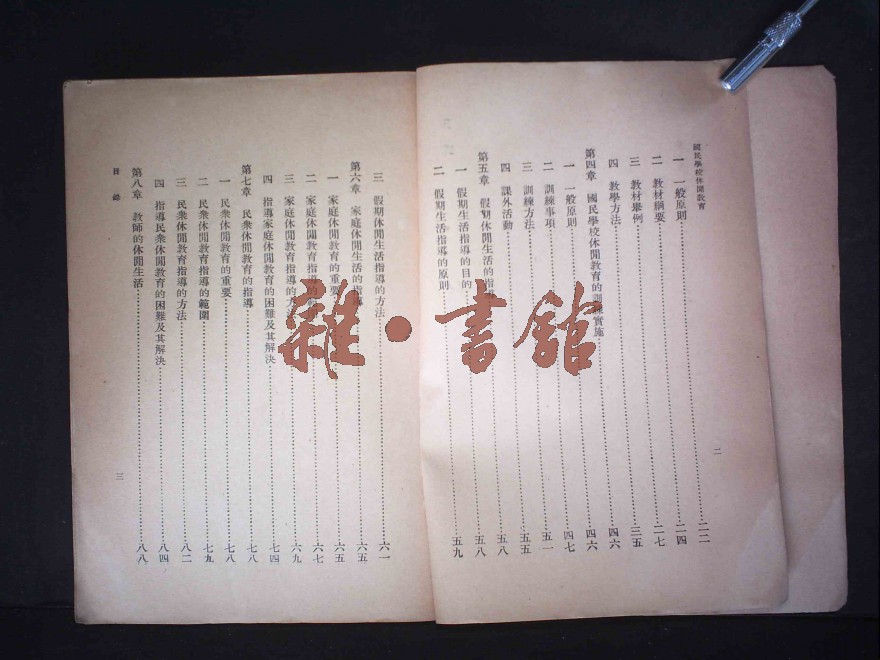 國民學校休閒教育
一 一般原則……二二
二 教材綱要……二四
三 教材舉例……二七
四 教學方法……三五
第四章 國民學校休閒教育的訓練實施……四六
一 一般原則……四六
二 訓練事項……四七
三 訓練方法……五一
四 課外活動……五五
第五章 假期休閒生活的指導……五八
一 假期生活指導的目的……五八
二 假期生活指導的原則……五九
二
三 假期休閒生活指導的方法……六一
第六章 家庭休閒生活的指導……六五
一 家庭休閒教育的重要……六五
二 家庭休閒教育指導的……六七
三 家庭休閒教育指導的方法……六九
四 指導家庭休閒教育的困難及其解決……七四
第七章 民衆休閒教育的指導……七八
一 民衆休閒教育的重要……七八
二 民衆休閒教育指導的範圍……七九
三 民衆休閒教育指導的方法……八二
四 指導民衆休閒教育的困難及其解決……八四
第八章 教師的休閒生活……八八
目錄
三
雜·書館